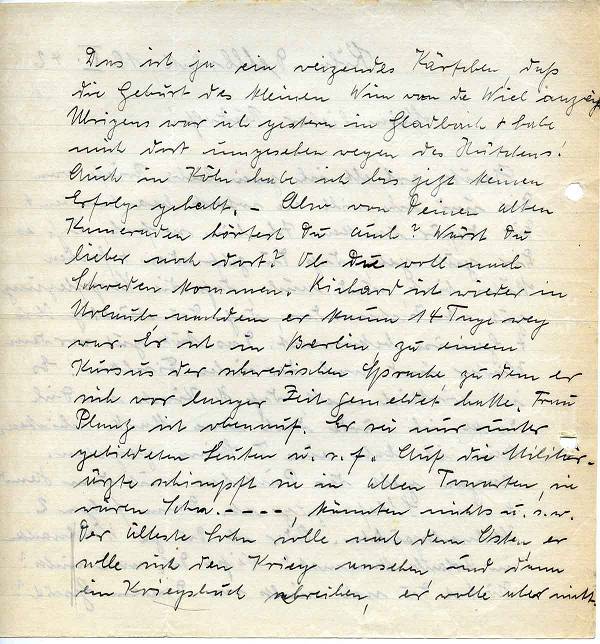 Das ist ja ein reizendes Kärtchen, daß
die Geburt des kleinen Wim van de Wiel anzeigt
Übrigens war ich gestern in Gladbach + habe
mich dort umgesehen wegen des Hütchens!
Auch in Köln habe ich bis jetzt keinen
Erfolg gehabt. – Also von Deinen alten
Kameraden hörtest Du auch? Wärst Du
lieber noch dort? Ob Die wohl nach
Schweden kommen. Richard ist wieder in
Urlaub, nachdem er kaum 14 Tage weg
war. Er ist in Berlin zu einem
Kursus der schwedischen Sprache, zu dem er
sich vor langer Zeit gemeldet hatte. Frau
ist obenauf. Er sei nur unter
gebildeten Leuten u. s. f. Auf die Militär-
ärzte schimpft sie in allen Tonarten, sie
wären Scha.----, könnten nichts u. s. w.
Der älteste Sohn solle nach dem Osten, er
solle sich den Krieg ansehen und dann
ein Kriegsbuch schreiben, er wolle aber nicht.